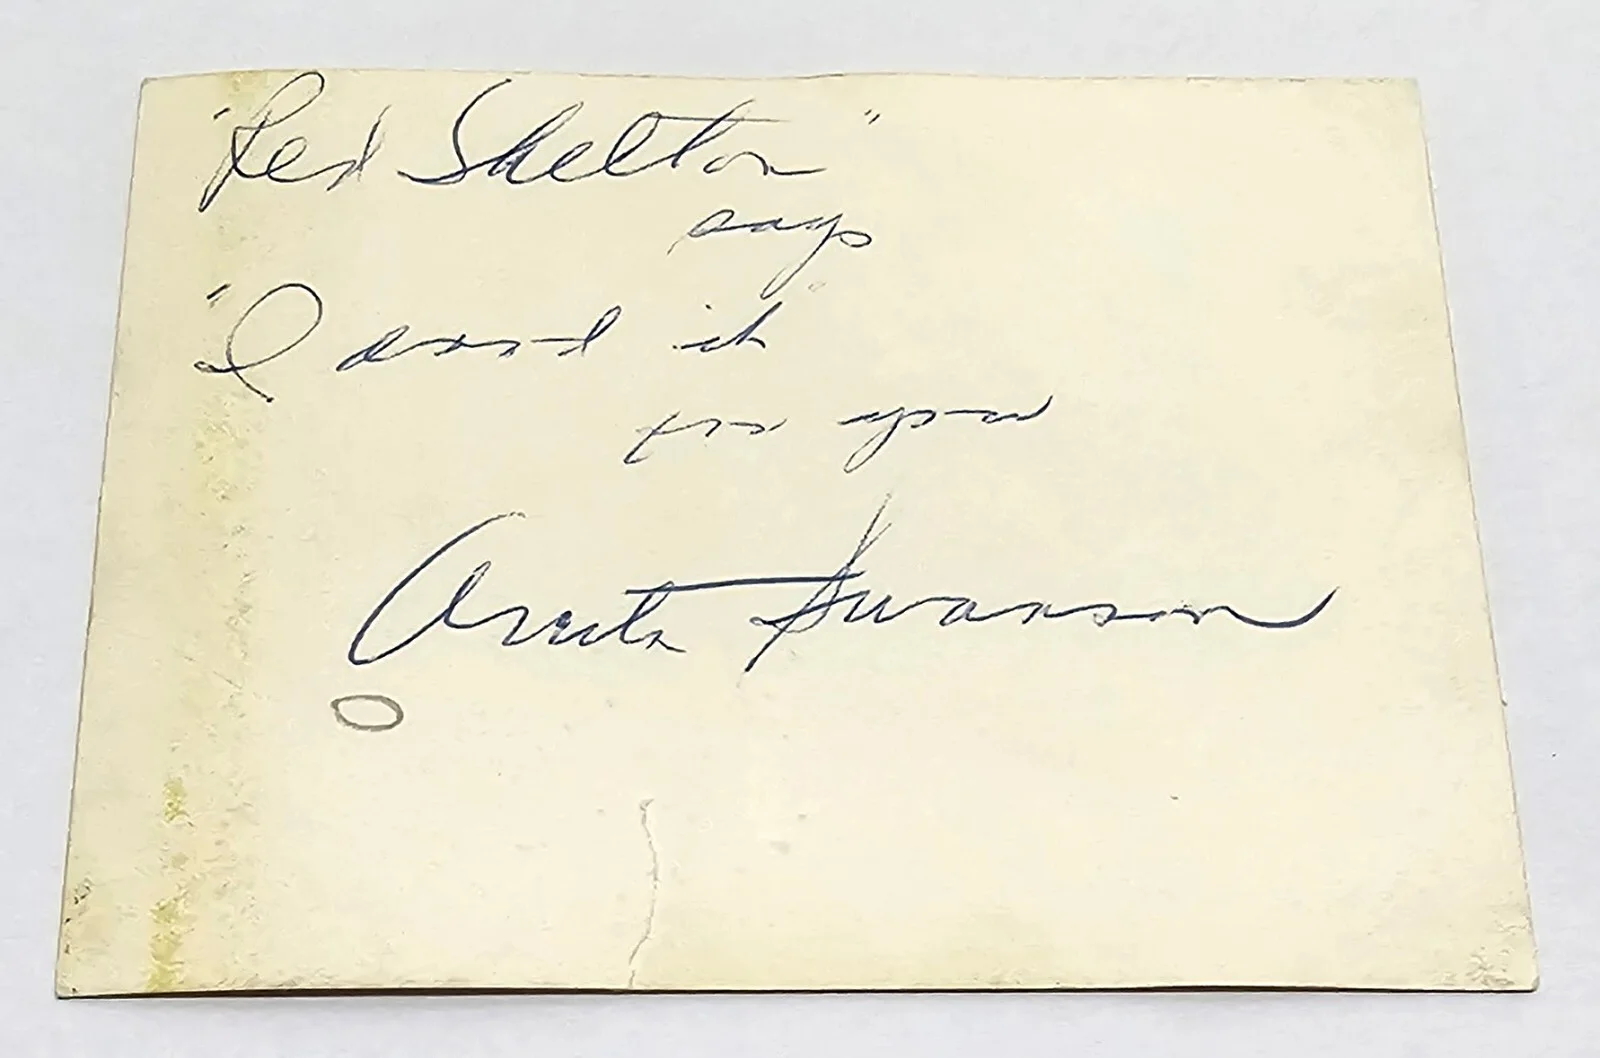 "Red Shelton"
says
"I dood it"
for you
Anita Swanson